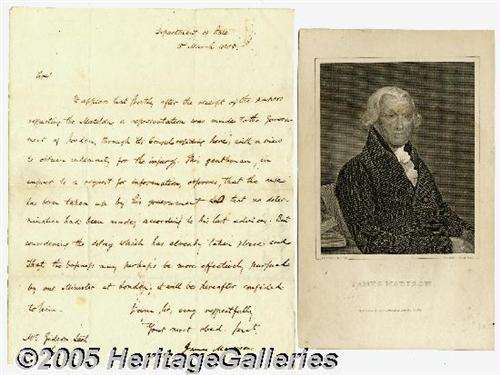 Department of State
March 1805.
Sir
It appears that shortly after the receipt of the papers
respecting the Matilda a representation was made to the Govern-
ment of Sweden, through its Consul residing here, with a view
to obtain indemnity for the injury. This gentleman, in
answer to a request for information, observes, that the case
has been taken up by his government but that no deter-
mination had been made, according to his last advices. But
considering the delay which has already taken place and
that the business may perhaps be more effectively pursued
by our Minister at London, it will be hereafter confided
to him.
I am Sir, very respectfully
Your most obed. Servt.
James Madison
Mr. Gideon
JAMES MADISON
©2005 HeritageGalleries